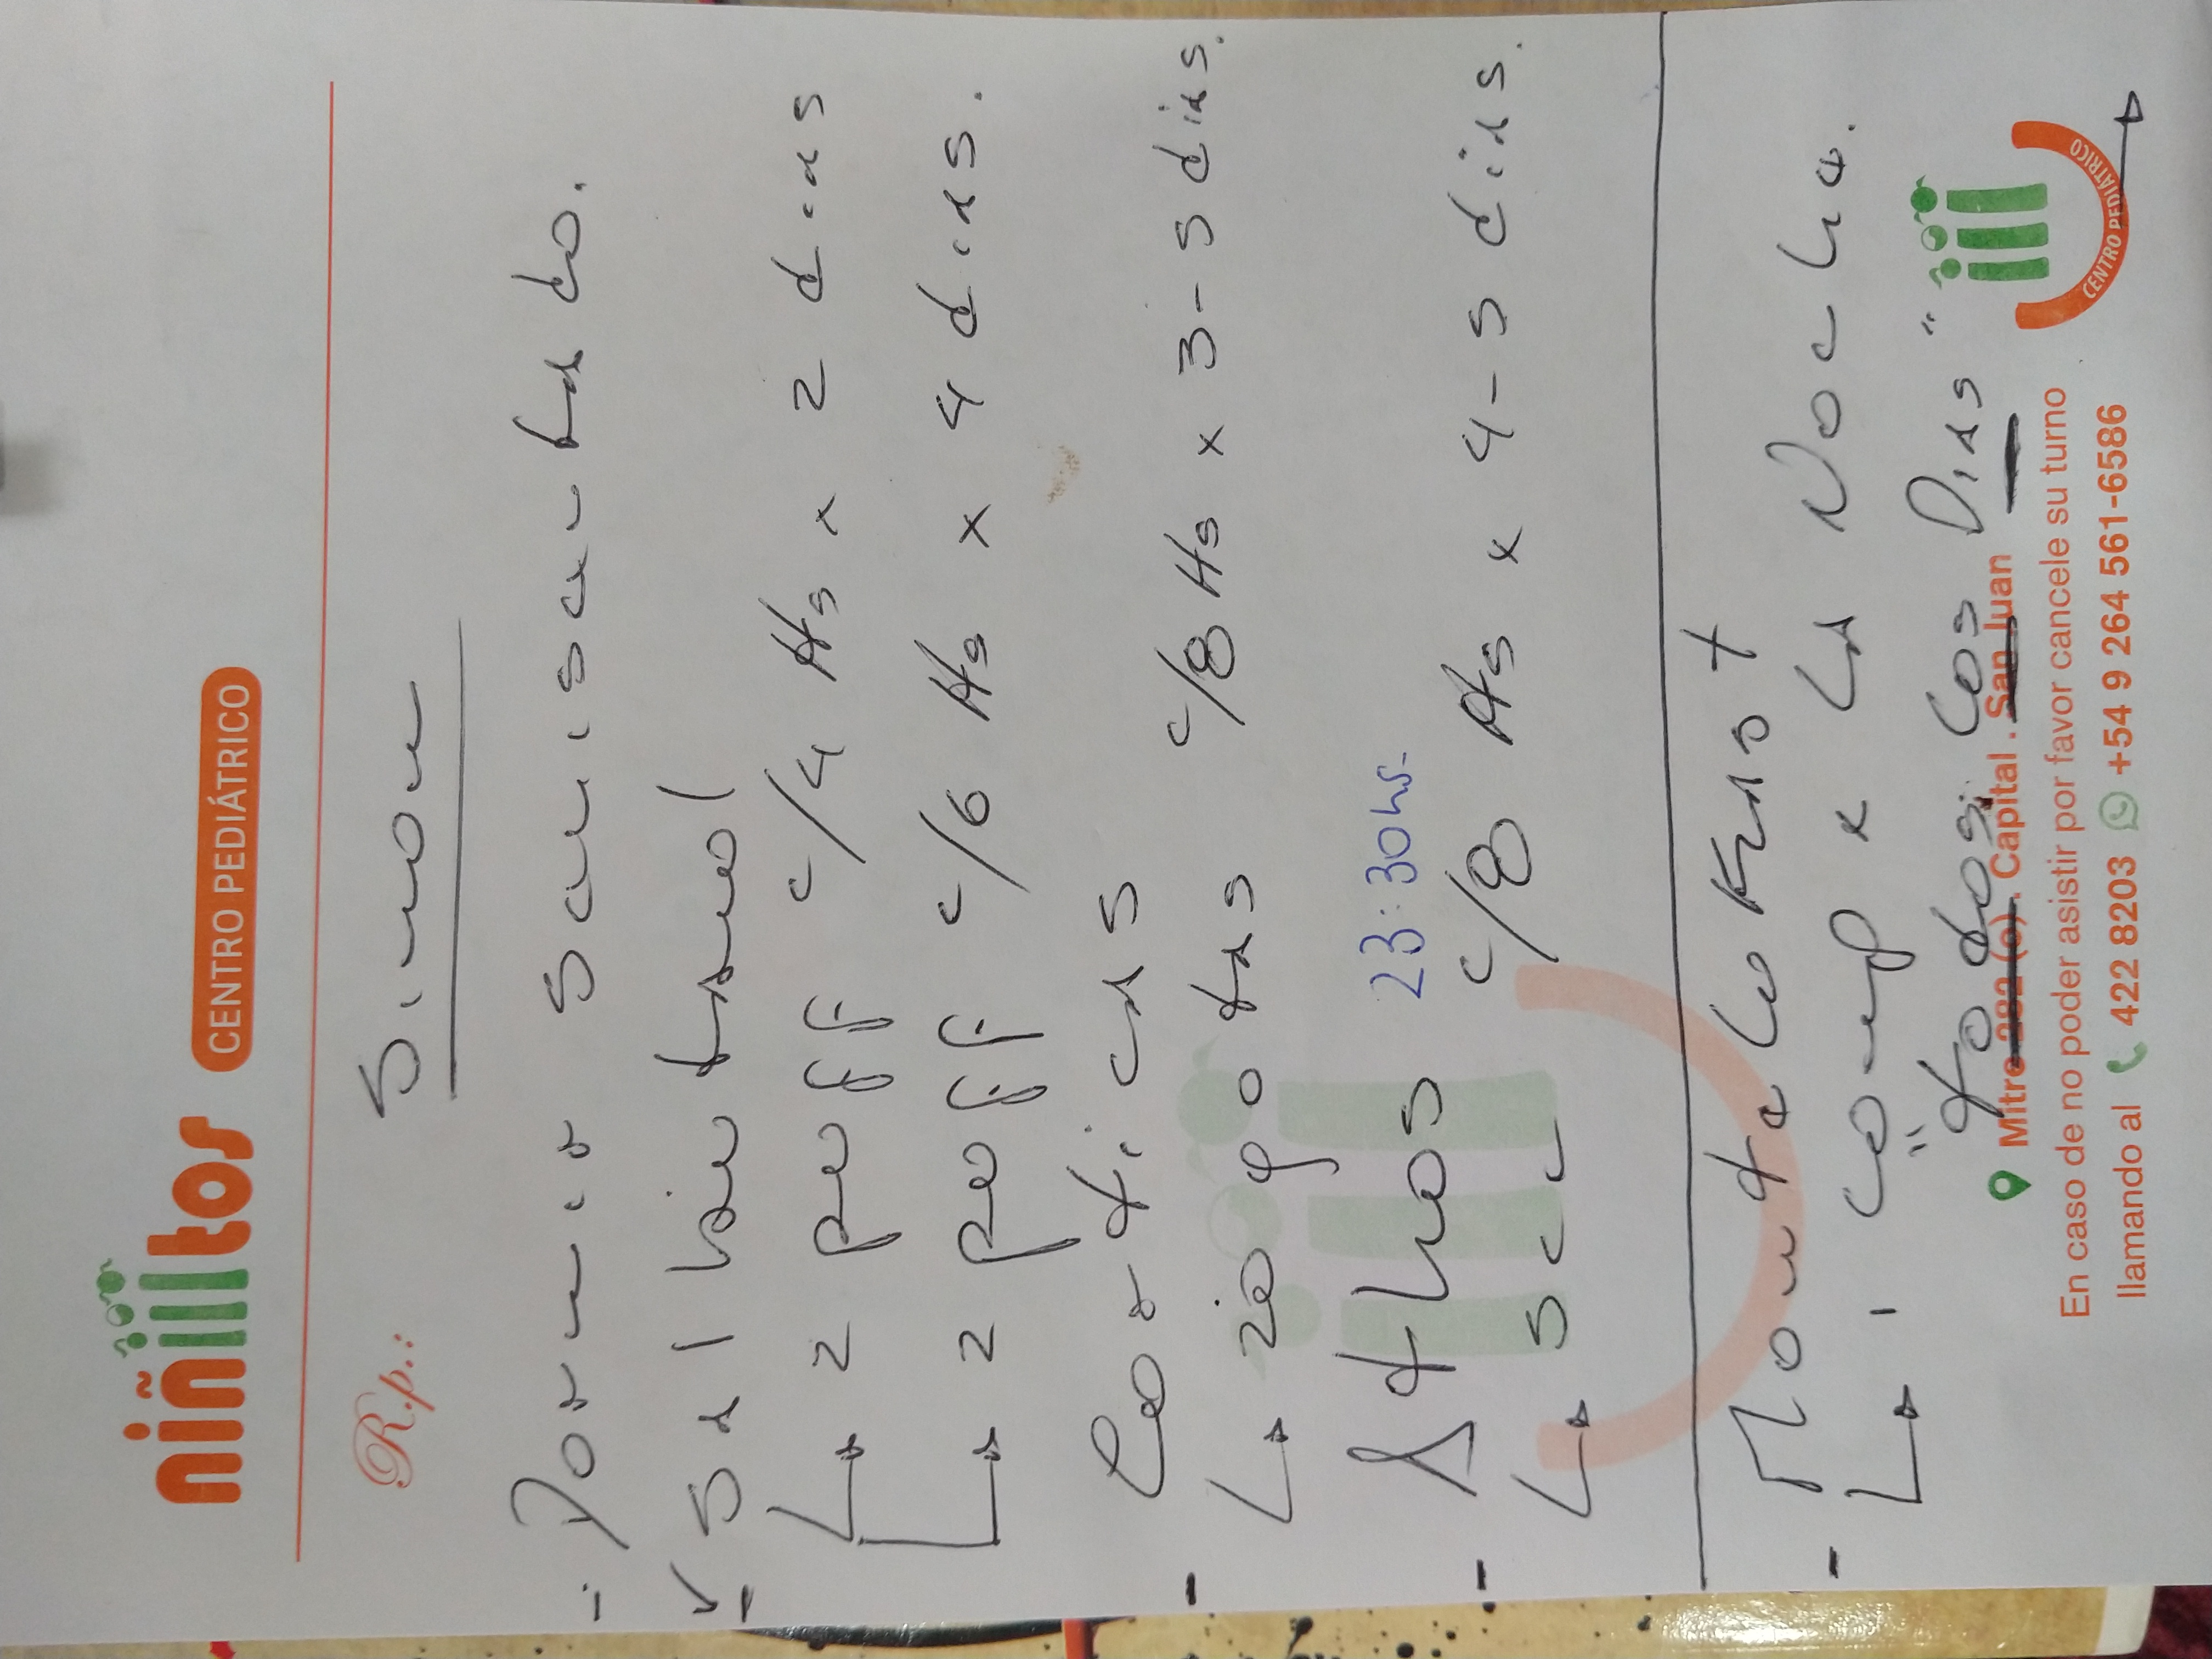 niñitos CENTRO PEDIÁTRICO
Rp.:
Simon
- Dormir semisentado.
- Salbutamol
↳ 2 puff c/4 Hs x 2 dias
↳ 2 puff c/6 Hs x 4 dias.
- Corticas
↳ 20 gotas c/8 Hs x 3-5 dias.
23:30hs-
- Athos
↳ 5cc c/8 Hs x 4-5 dias.
- Montelukast
↳ 1 comp x la Noche.
"todos los Dias"
Mitre 282 (o). Capital. San Juan
En caso de no poder asistir por favor cancele su turno
llamando al 422 8203 +54 9 264 561-6586
CENTRO PEDIÁTRICO